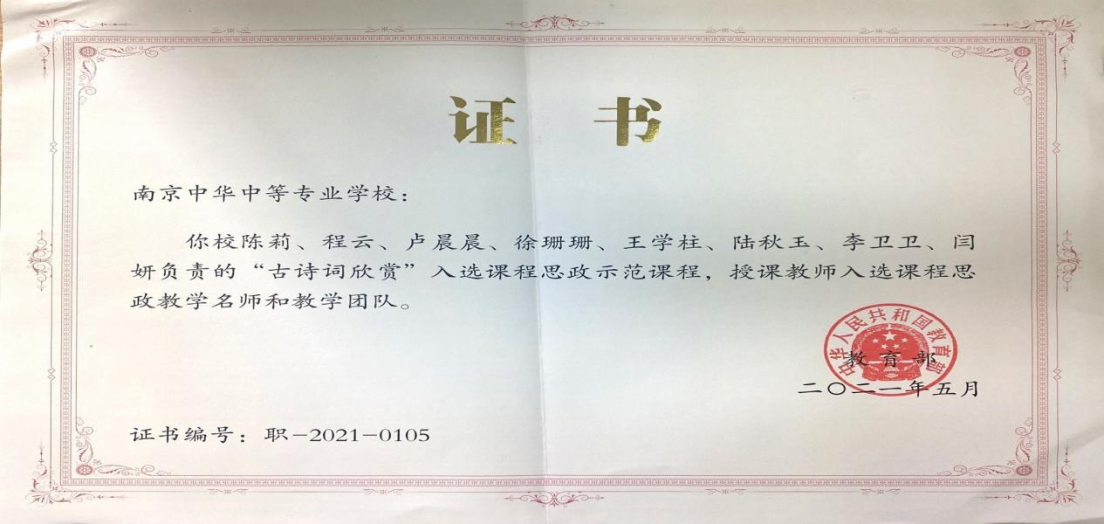 证 书
南京中华中等专业学校：
你校陈莉、程云、卢晨晨、徐珊珊、王学柱、陆秋玉、李卫卫、闫
妍负责的“古诗词欣赏”入选课程思政示范课程，授课教师入选课程思
政教学名师和教学团队。
中华人民共和国教育部
教 育 部
二〇二一年五月
证书编号：职-2021-0105